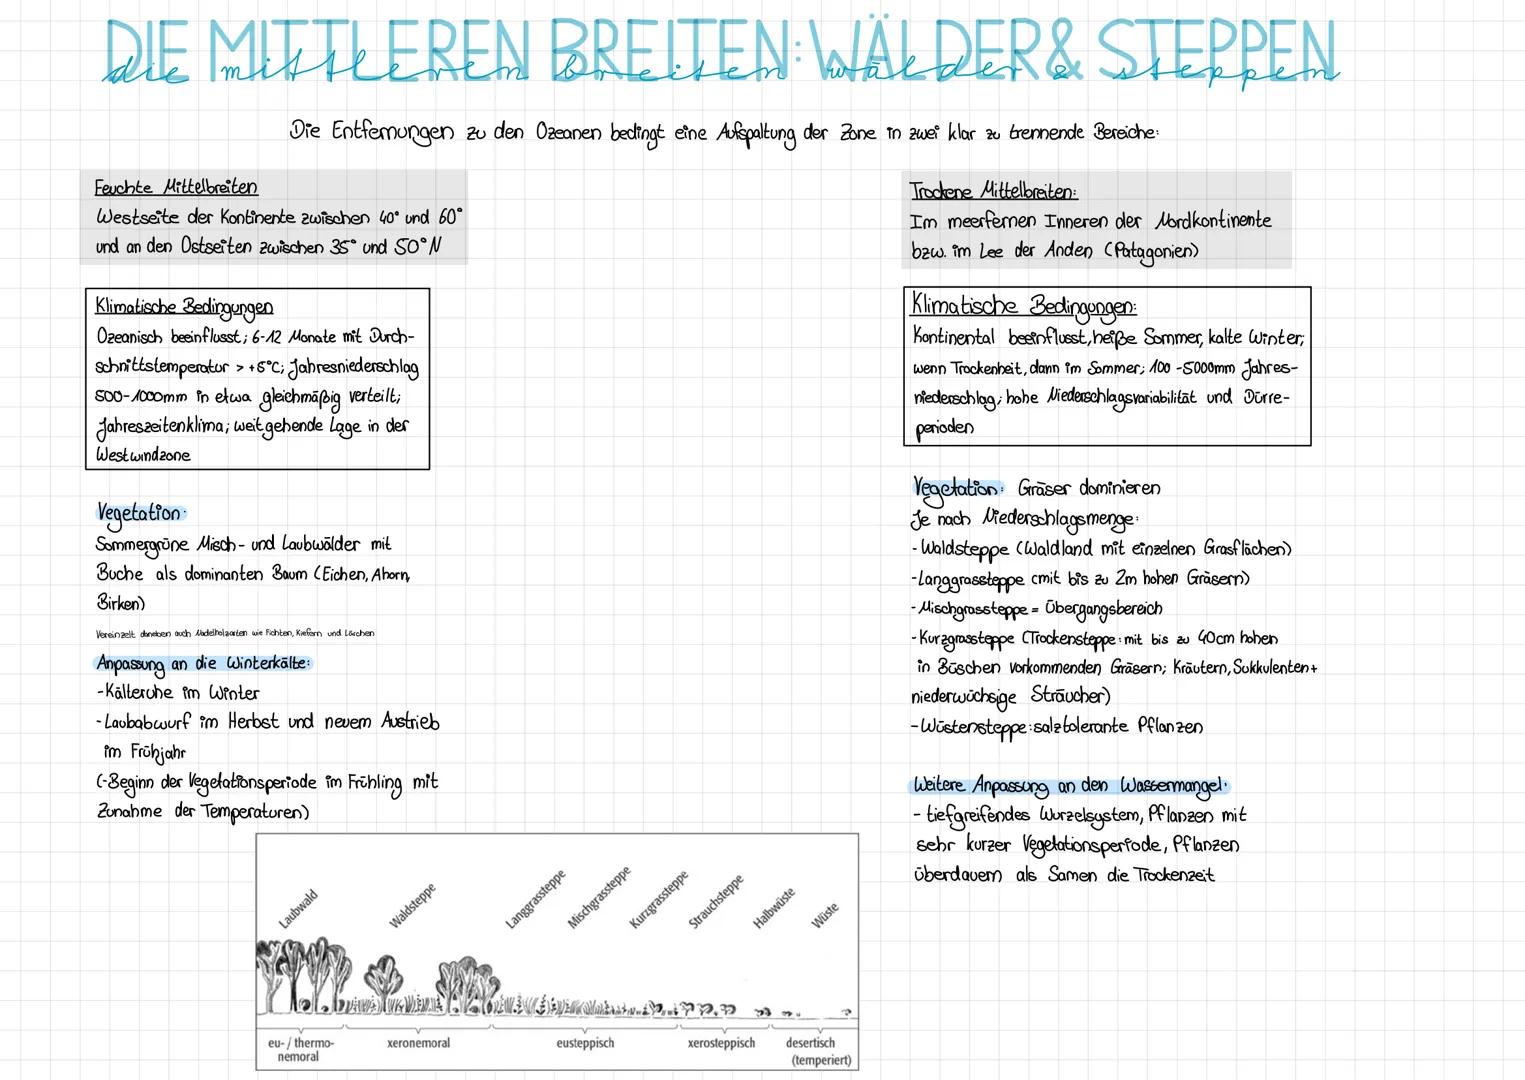 DIE MITTLEREN BREITEN: WÄLDER & STEPPEN
die mittleren breiten wälder & steppen
Die Entfernungen zu den Ozeanen bedingt eine Aufspaltung der Zone in zwei klar zu trennende Bereiche:
Feuchte Mittelbreiten
Westseite der Kontinente zwischen 40° und 60°
und an den Ostseiten zwischen 35° und 50°N
Klimatische Bedingungen
Ozeanisch beeinflusst; 6-12 Monate mit Durch-
schnittstemperatur > +5°C; Jahresniederschlag
500-1000mm in etwa gleichmäßig verteilt;
Jahreszeitenklima; weitgehende Lage in der
Westwindzone
Vegetation:
Sommergrüne Misch- und Laubwälder mit
Buche als dominanten Baum (Eichen, Ahorn,
Birken)
Vereinzelt daneben auch Nadelholzarten wie Fichten, Kiefern und Lärchen
Anpassung an die Winterkälte:
-Kälteruhe im Winter
-Laubabwurf im Herbst und neuem Austrieb
im Frühjahr
(-Beginn der Vegetationsperiode im Frühling mit
Zunahme der Temperaturen)
Trockene Mittelbreiten:
Im meerfernen Inneren der Nordkontinente
bzw. im Lee der Anden (Patagonien)
Klimatische Bedingungen:
Kontinental beeinflusst, heiße Sommer, kalte Winter;
wenn Trockenheit, dann im Sommer; 100-5000mm Jahres-
niederschlag; hohe Niederschlagsvariabilität und Dürre-
perioden
Vegetation: Gräser dominieren
Je nach Niederschlagsmenge:
- Waldsteppe (Waldland mit einzelnen Grasflächen)
-Langgrassteppe (mit bis zu 2m hohen Gräsern)
- Mischgrassteppe = Übergangsbereich
- Kurzgrassteppe (Trockensteppe: mit bis zu 40cm hohen
in Büschen vorkommenden Gräsern; Kräutern, Sukkulenten +
niederwüchsige Sträucher)
- Wüstensteppe: salztolerante Pflanzen
Weitere Anpassung an den Wassermangel:
- tiefgreifendes Wurzelsystem, Pflanzen mit
sehr kurzer Vegetationsperiode, Pflanzen
überdauern als Samen die Trockenzeit
Laubwald
Waldsteppe
Langgrassteppe
Mischgrassteppe
Kurzgrassteppe
Strauchsteppe
Halbwüste
Wüste
eu- / thermo-
nemoral
xeronemoral
eusteppisch
xerosteppisch
desertisch
(temperiert)